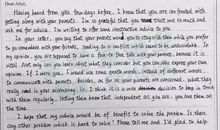 Dear Alice,
Having heard from you few days before, I know that you are confused with
getting along with your parents. I'm so grateful that you trust me so much and
ask me for advice. I'm writing to offer some constructive advice to you.
In your letter, you say that your parents want you to stay with them while you prefer
to go somewhere with your friends, leading to a conflict which seems to be unavoidable. In
my opinion, you are supposed to have a face to face talk with your parents, because it is
vital. Not only can you learn about what they consider but you can also express your own
opinion. If I were you, I would use some gentle words instead of different words,
to communicate with parents. Besides, as far as your parents are concerned, what they
really need is your accompany. So, I think it is a wise decision to keep in touch
with them regularly, letting them know that independent as you are, you love them all
the time.
I hope that my advice would be of benefit to solve the problem. Is there
any other problem which is hard to solve? Please tell me and I'd glad to help